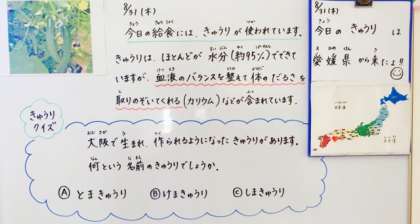 8/31 (木)
今日の給食には、きゅうりが使われています。
きゅうりは、ほとんどが水分(約95%)でできて
いますが、血液のバランスを整えて体のだるさを
取りのぞいてくれる(カリウム)などが含まれています。
きゅうり
クイズ
大阪で生まれ、作られるようになったきゅうりがあります。
何という名前のきゅうりでしょうか。
Ⓐ とまきゅうり Ⓑ けまきゅうり Ⓒ しまきゅうり
8/31 (木)
今日のきゅうりは
愛媛県から来たよ!!